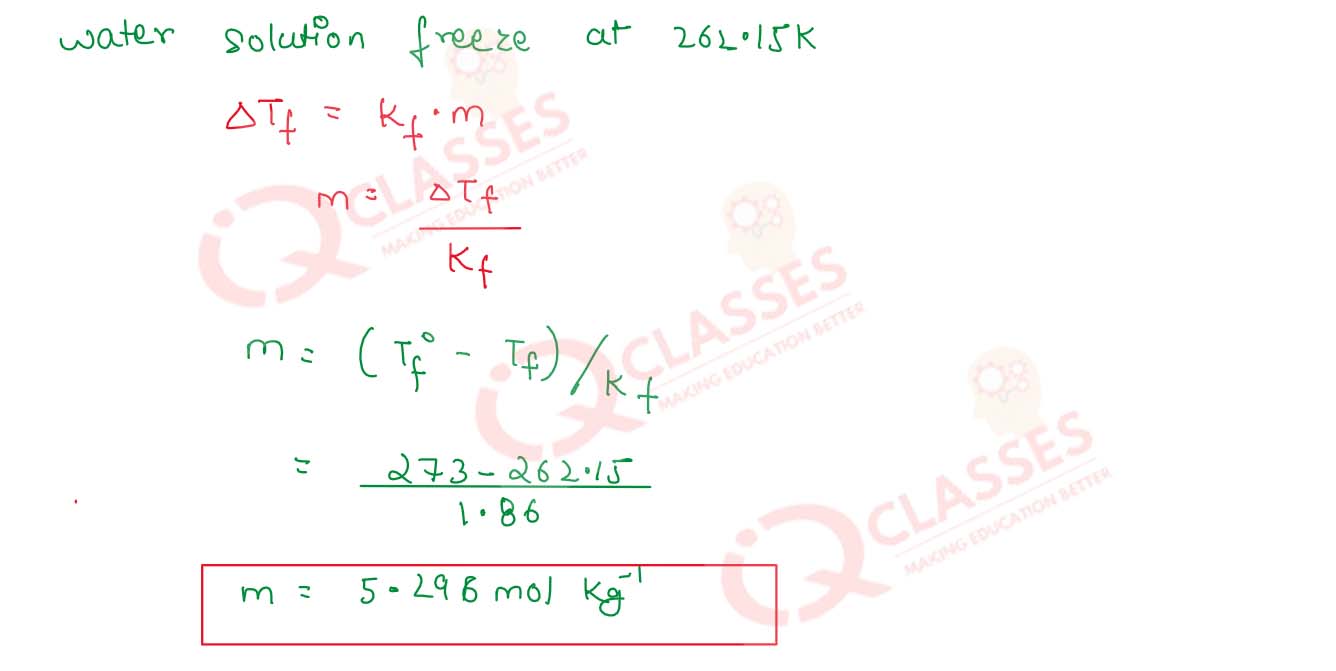 water solution freeze at 262.15K
ΔTf = Kf · m
m = ΔTf
Kf
m = (Tf° - Tf) / Kf
= 273 - 262.15
1.86
m = 5.296 mol kg⁻¹
iQ CLASSES
MAKING EDUCATION BETTER
iQ CLASSES
MAKING EDUCATION BETTER
iQ CLASSES
MAKING EDUCATION BETTER